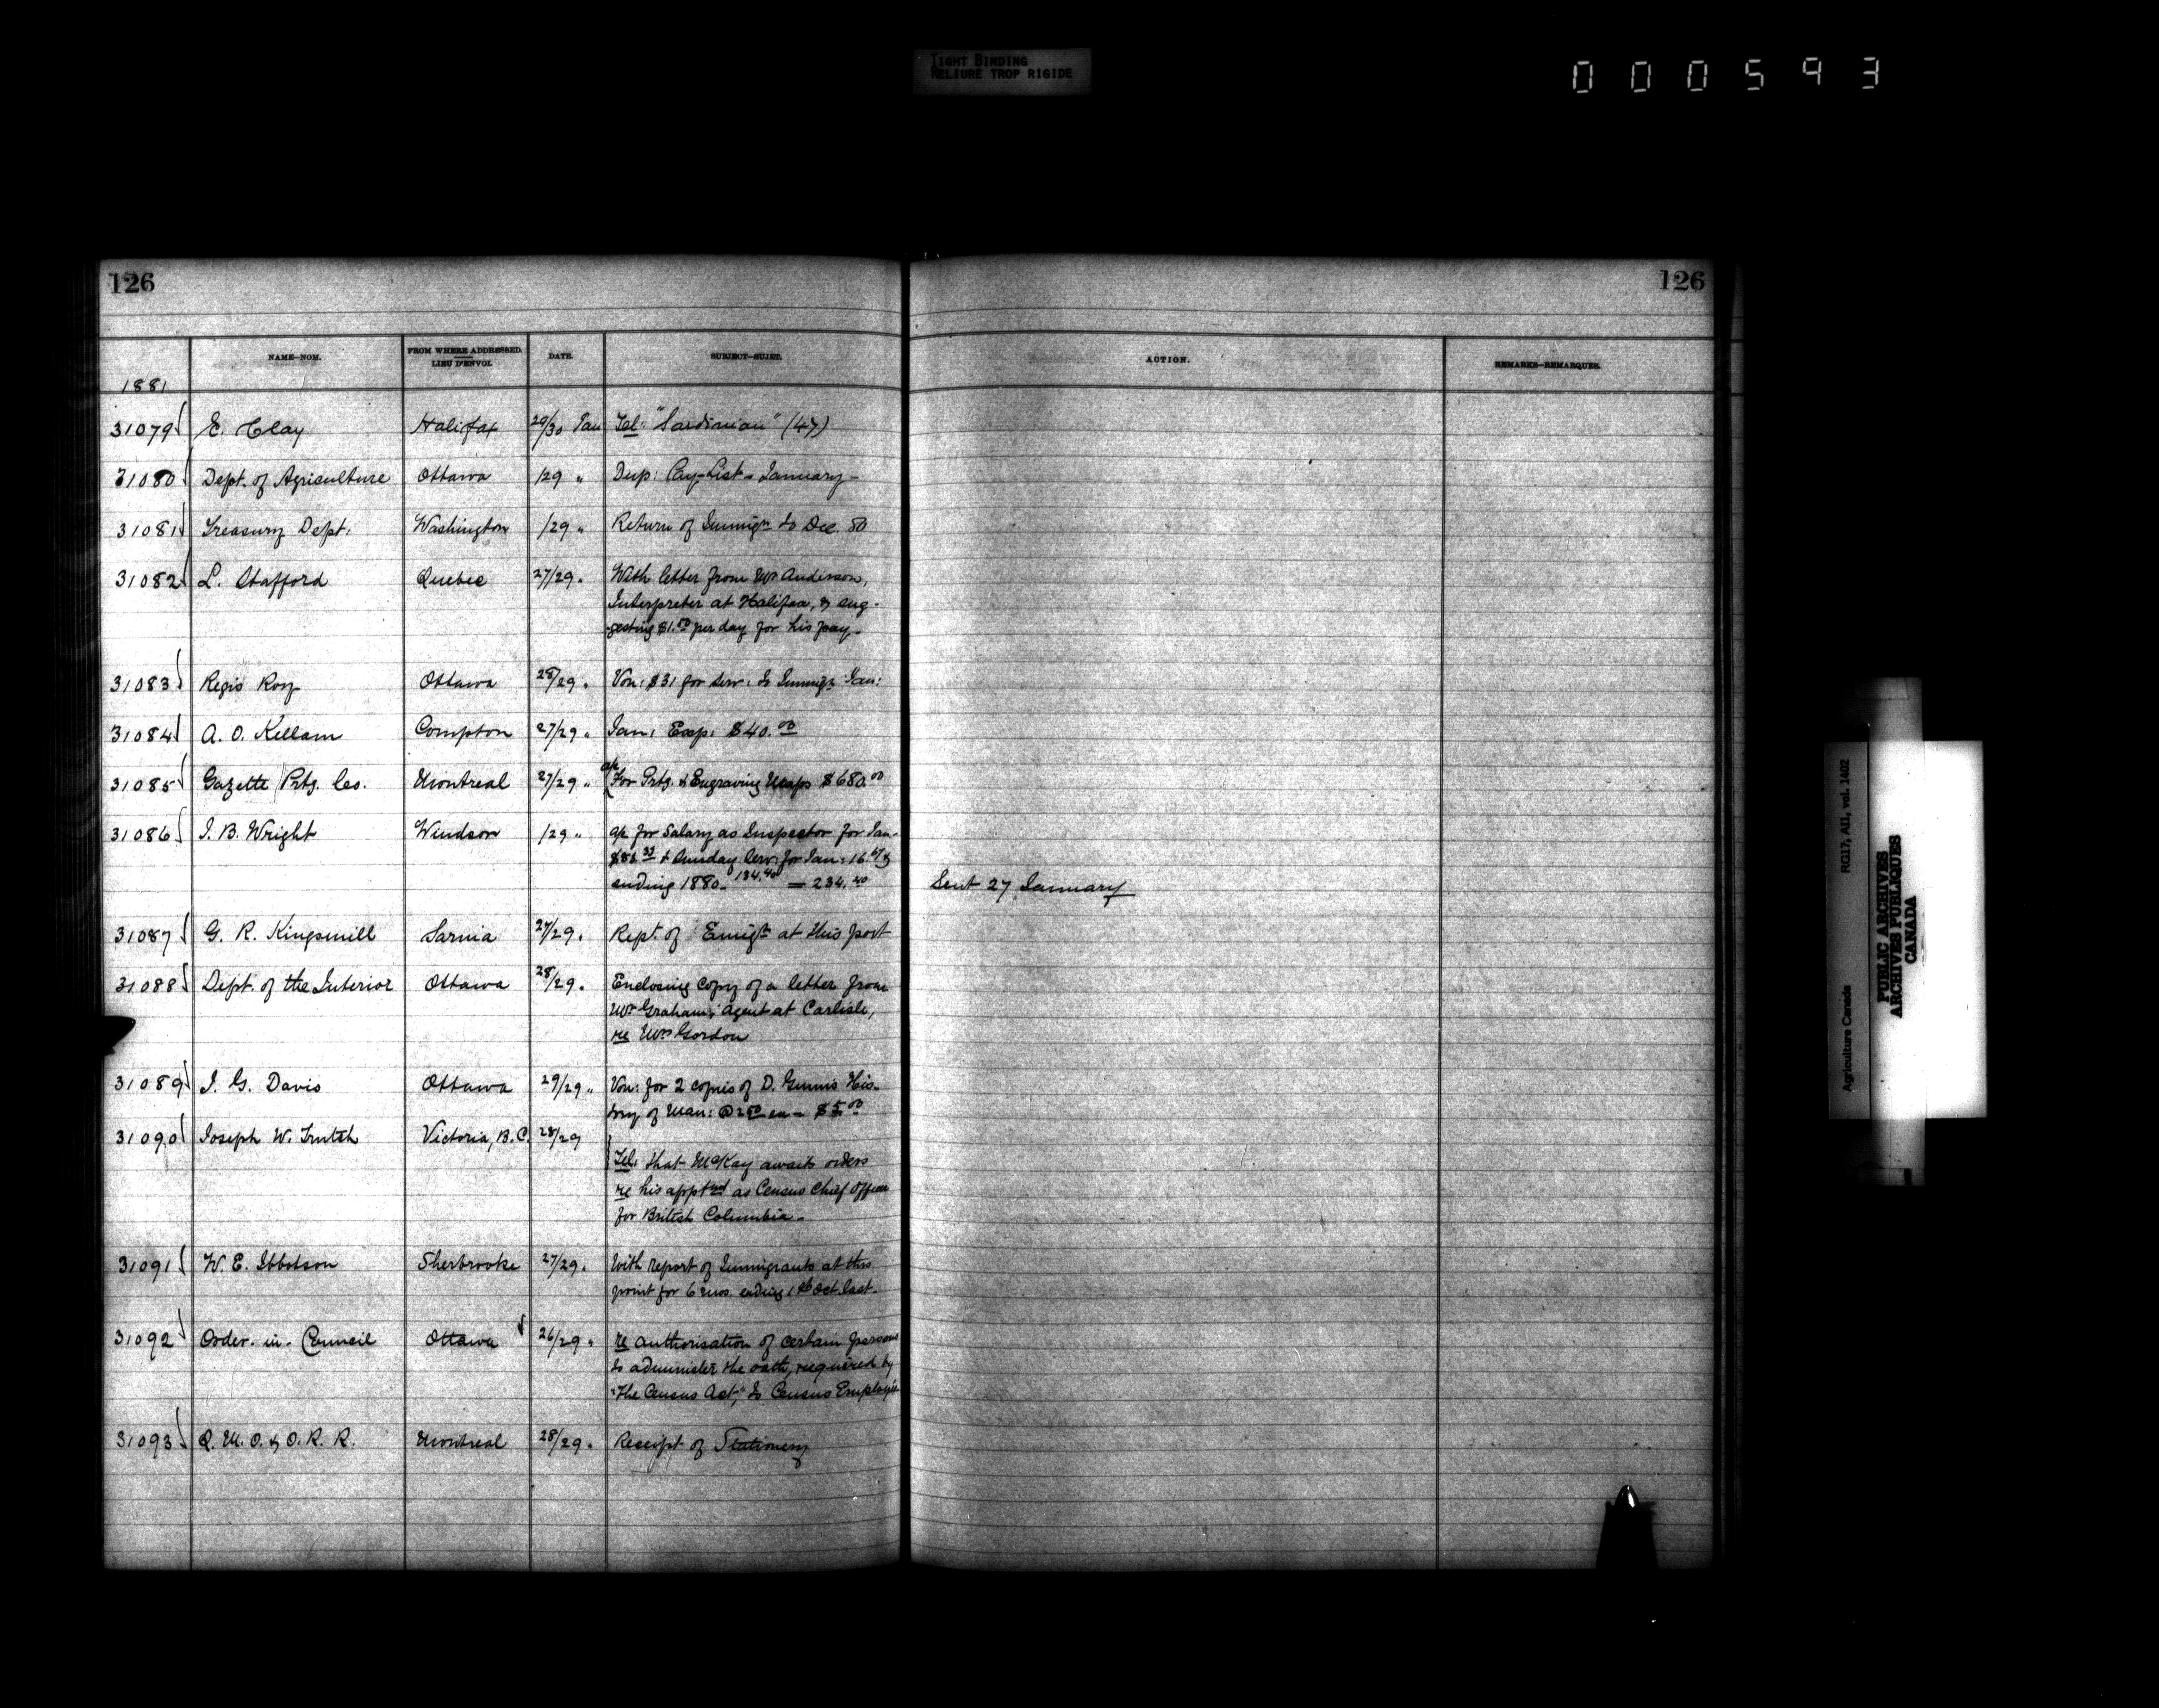 TIGHT BINDING
RELIURE TROP RIGIDE
000593
126
126
NAME—NOM. FROM WHERE ADDRESSED. LIEU D'ENVOI. DATE. SUBJECT—SUJET. ACTION. REMARKS—REMARQUES.
1881
31079 E. Clay Halifax 29/30 Jan Tel: "Sardinian" (47)
31080 Dept. of Agriculture Ottawa /29 " Dup: Pay-List - January -
31081 Treasury Dept. Washington /29 " Return of Immign to Dec. 80
31082 L. Stafford Quebec 27/29 " With letter from Mr Anderson,
Interpreter at Halifax, & sug-
gesting $1.50 per day for his pay -
31083 Regis Roy Ottawa 28/29 " Vou: $31 for Serv: to Immign Jan:
31084 A. O. Kellam Compton 27/29 " Jan: Exp: $40.00
31085 Gazette Prtg. Co. Montreal 27/29 " a/c For Prtg. & Engraving Maps $680.00
31086 J. B. Wright Windsor /29 " a/c for Salary as Inspector for Jan.
& Sunday Serv: for Jan: 16
ending 1880 - 134.40 = 234.40 Sent 27 January
31087 G. R. Kingsmill Sarnia 27/29 " Rept. of Emign at this port
31088 Dept. of the Interior Ottawa 28/29 " Enclosing copy of a letter from
Mr Graham, Agent at Carlisle,
re Mrs Gordon
31089 J. G. Davis Ottawa 29/29 " Vou: for 2 copies of D. Gunns His-
tory of Man: @ 2.50 ea - $5.00
31090 Joseph W. Trutch Victoria, B.C. 28/29
Tel: that McKay awaits orders
re his apptmt as Census Chief Officer
for British Columbia -
31091 W. E. Ibbotson Sherbrooke 27/29 " With report of Immigrants at this
point for 6 mos. ending 1st Oct. last -
31092 Order-in-Council Ottawa 26/29 " re authorisation of certain persons
to administer the oath, required by
"The Census Act," to Census Employés
31093 Q. M. O. & O. R. R. Montreal 28/29 " Receipt of Stationery
Agriculture Canada RG17, AII, vol. 1402
PUBLIC ARCHIVES
ARCHIVES PUBLIQUES
CANADA